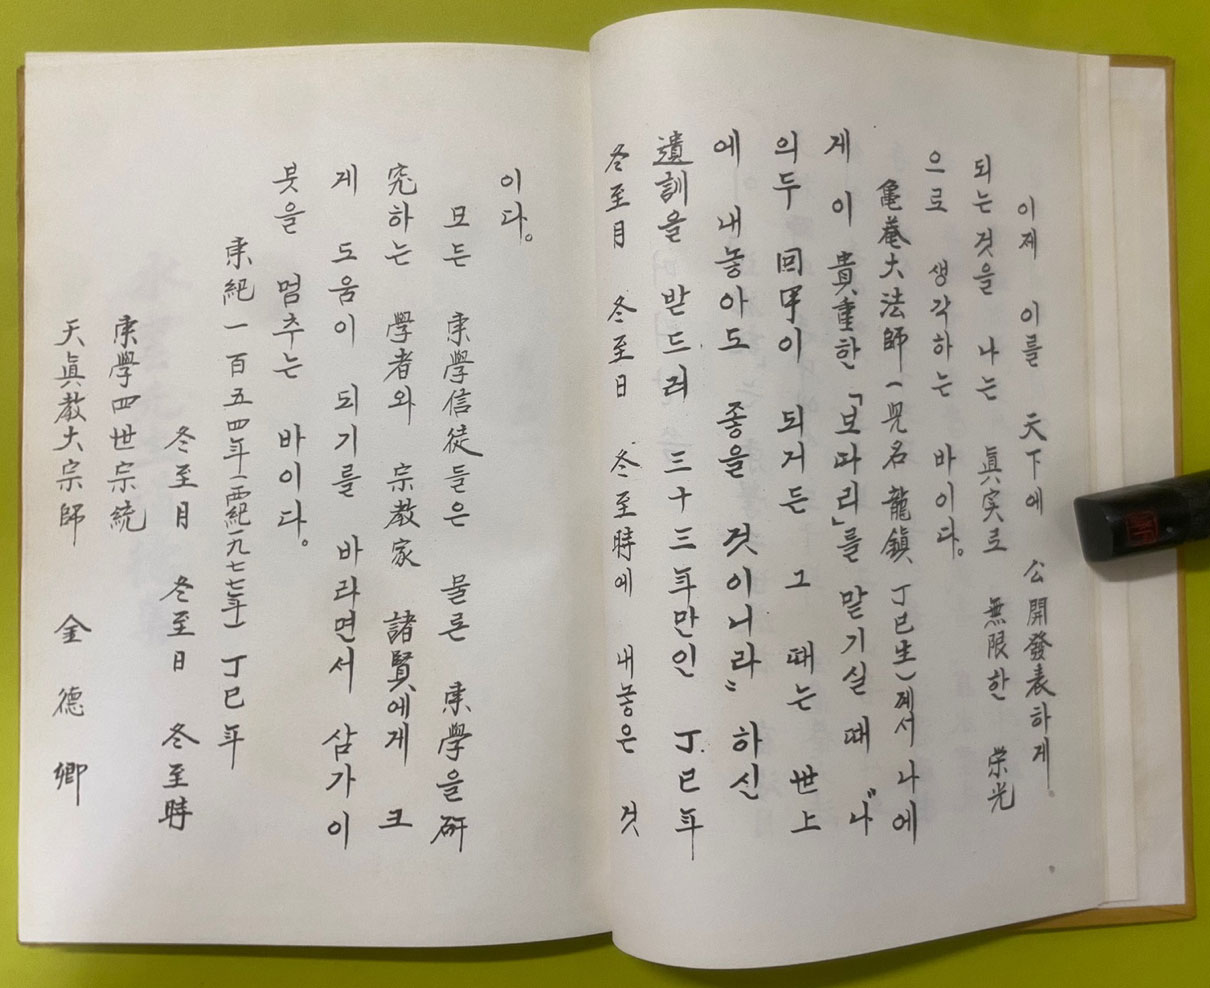 이제 이를 天下에 公開發表하게
되는것을 나는 眞实로 無限한 榮光
으로 생각하는 바이다。
龜菴大法師(兒名 龍鎭 丁巳生)께서 나에
게 이 貴重한「보따리」를 맡기실 때 〃나
의두 回甲이 되거든 그 때는 世上
에 내놓아도 좋을 것이니라〃 하신
遺訓을 받드러 三十三年만인 丁巳年
冬至月 冬至日 冬至時에 내놓은 것
이다。
모든 東學信徒들은 물론 東學을 硏
究하는 學者와 宗教家 諸賢에게 크
게 도움이 되기를 바라면서 삼가이
붓을 멈추는 바이다。
東紀一百五四年(西紀一九七七年) 丁巳年
冬至月 冬至日 冬至時
東學四世宗統
天眞教大宗師 金德卿